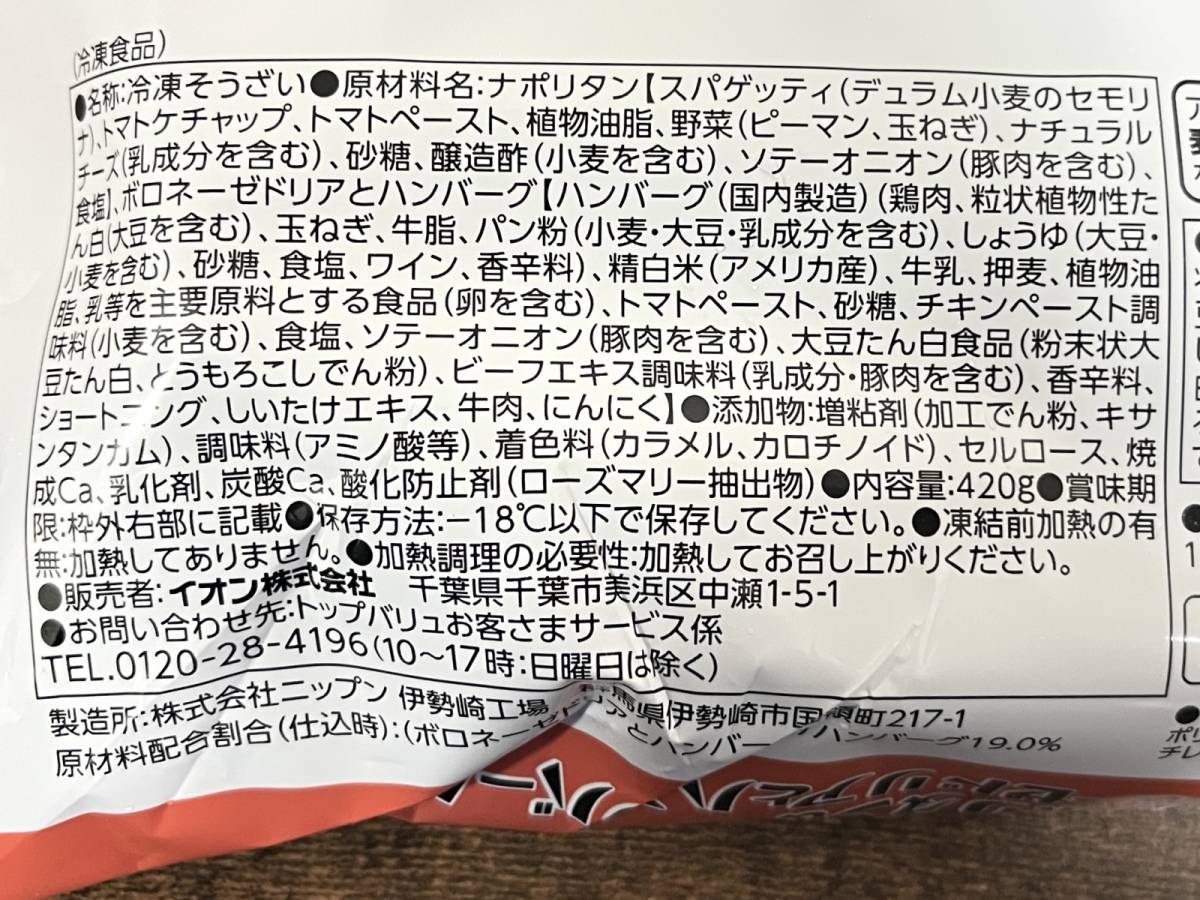 (冷凍食品)
●名称:冷凍そうざい●原材料名:ナポリタン【スパゲッティ(デュラム小麦のセモリ
ナ)、トマトケチャップ、トマトペースト、植物油脂、野菜(ピーマン、玉ねぎ)、ナチュラル
チーズ(乳成分を含む)、砂糖、醸造酢(小麦を含む)、ソテーオニオン(豚肉を含む)、
食塩】、ボロネーゼドリアとハンバーグ【ハンバーグ(国内製造)(鶏肉、粒状植物性た
ん白(大豆を含む)、玉ねぎ、牛脂、パン粉(小麦・大豆・乳成分を含む)、しょうゆ(大豆・
小麦を含む)、砂糖、食塩、ワイン、香辛料)、精白米(アメリカ産)、牛乳、押麦、植物油
脂、乳等を主要原料とする食品(卵を含む)、トマトペースト、砂糖、チキンペースト調
味料(小麦を含む)、食塩、ソテーオニオン(豚肉を含む)、大豆たん白食品(粉末状大
豆たん白、とうもろこしでん粉)、ビーフエキス調味料(乳成分・豚肉を含む)、香辛料、
ショートニング、しいたけエキス、牛肉、にんにく】●添加物:増粘剤(加工でん粉、キサ
ンタンガム)、調味料(アミノ酸等)、着色料(カラメル、カロチノイド)、セルロース、焼
成Ca、乳化剤、炭酸Ca、酸化防止剤(ローズマリー抽出物)●内容量:420g●賞味期
限:枠外右部に記載●保存方法:-18℃以下で保存してください。●凍結前加熱の有
無:加熱してありません。●加熱調理の必要性:加熱してお召し上がりください。
●販売者:イオン株式会社 千葉県千葉市美浜区中瀬1-5-1
●お問い合わせ先:トップバリュお客さまサービス係
TEL.0120-28-4196(10~17時:日曜日は除く)
製造所:株式会社ニップン 伊勢崎工場 群馬県伊勢崎市国領町217-1
原材料配合割合(仕込時):(ボロネーゼドリアとハンバーグ)ハンバーグ19.0%